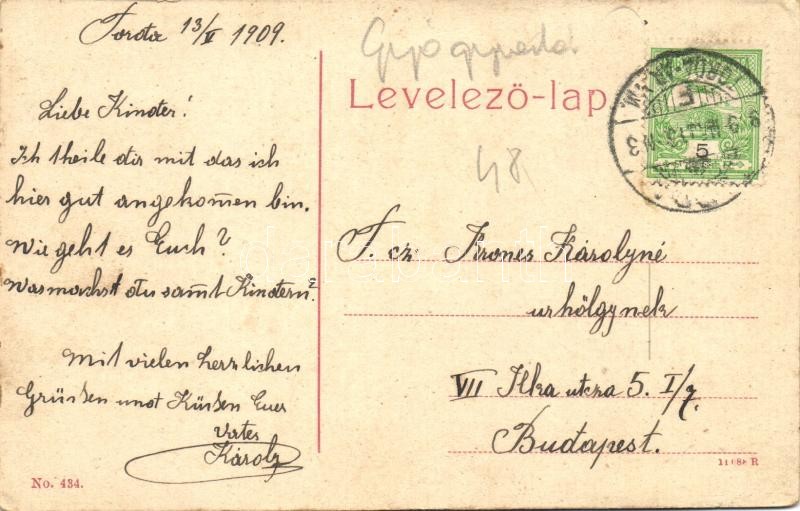 Torda 13/V 1909.
Liebe Kinder!
Ich theile dir mit das ich
hier gut angekommen bin.
Wie geht es Euch?
Was machst du samt Kindern?
Mit vielen herzlichen
Grüssen und Küssen Euer
Vater
Károly
No. 434.
Levelező-lap
48
5
T. cz. Krones Károlyné
urhölgynek
VII Ilka utcza 5. I/7.
Budapest.